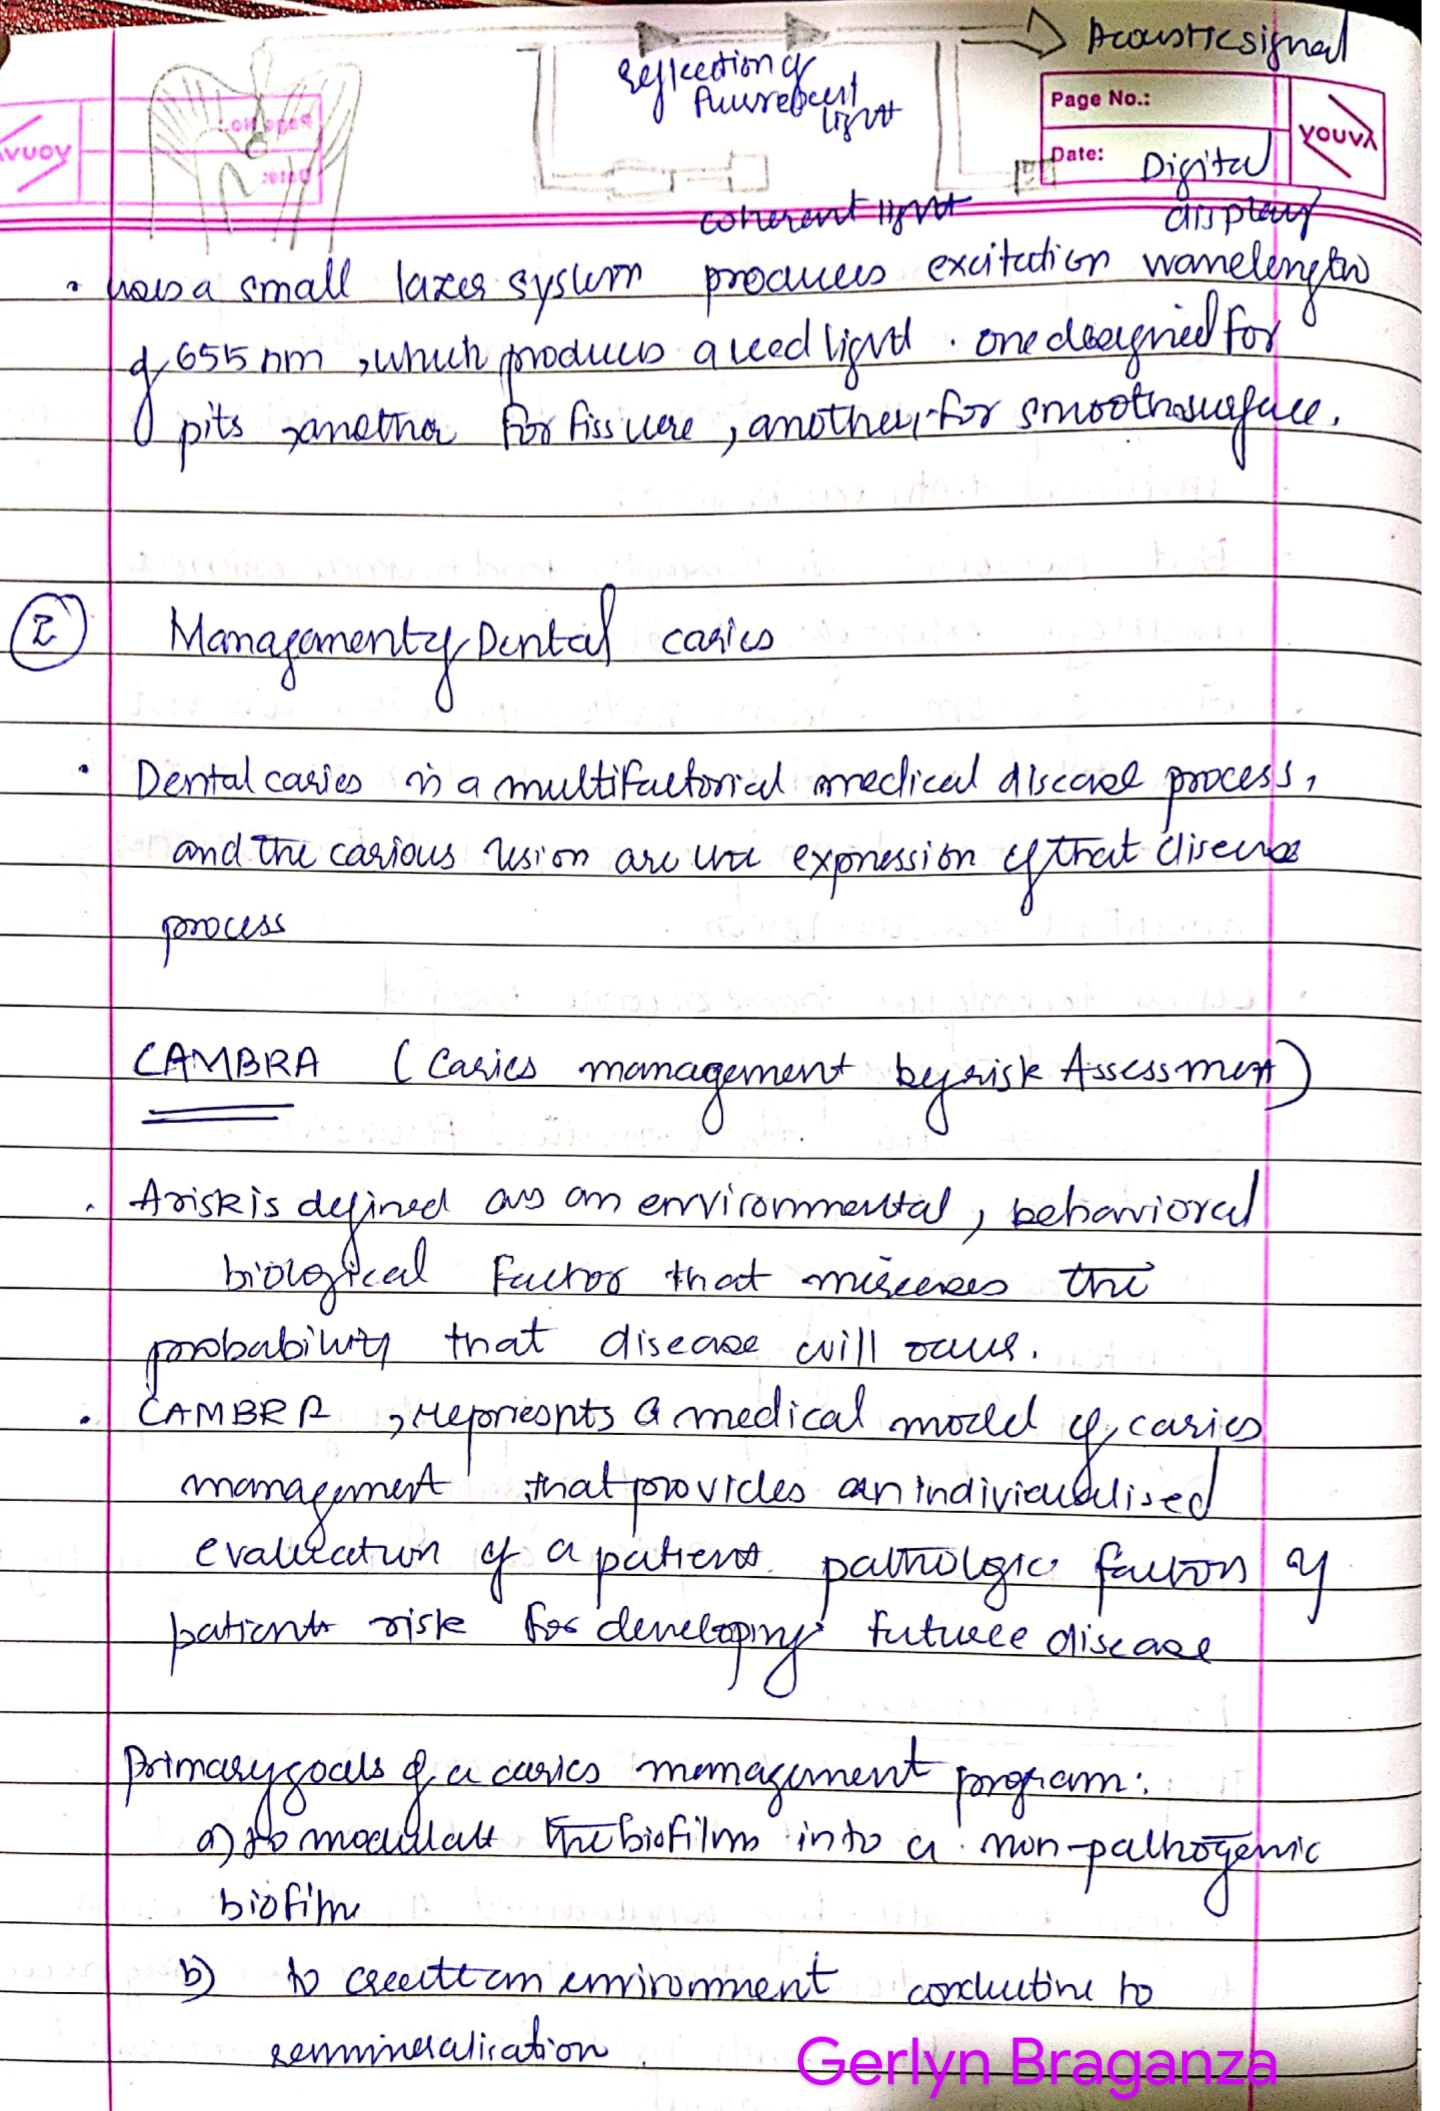 Acoustic signal
Reflection of
fluurescent
light
Page No.:
Date:
YOUVA
Digital
display
coherent light
• uses a small lazer system produces excitation wavelength
of 655 nm, which produces a reed light. one designed for
pits, another for fissure, another for smooth surface.
2 Management of Dental caries
• Dental caries is a multifactorial medical disease process,
and the carious lesion are the expression of that disease
process
CAMBRA (Caries management by risk Assessment)
• A risk is defined as an environmental, behavioral
biological factor that the
probability that disease will occur.
• CAMBRA, represnts a medical model of caries
management that provides an individualised
evaluation of a patient pathologic factors of
patients risk for developing future disease
Primary goals of a caries management program:
a) to modulate the biofilm into a non-pathogenic
biofilm
b) to create an environment conductive to
remineralisation.
Gerlyn Braganza